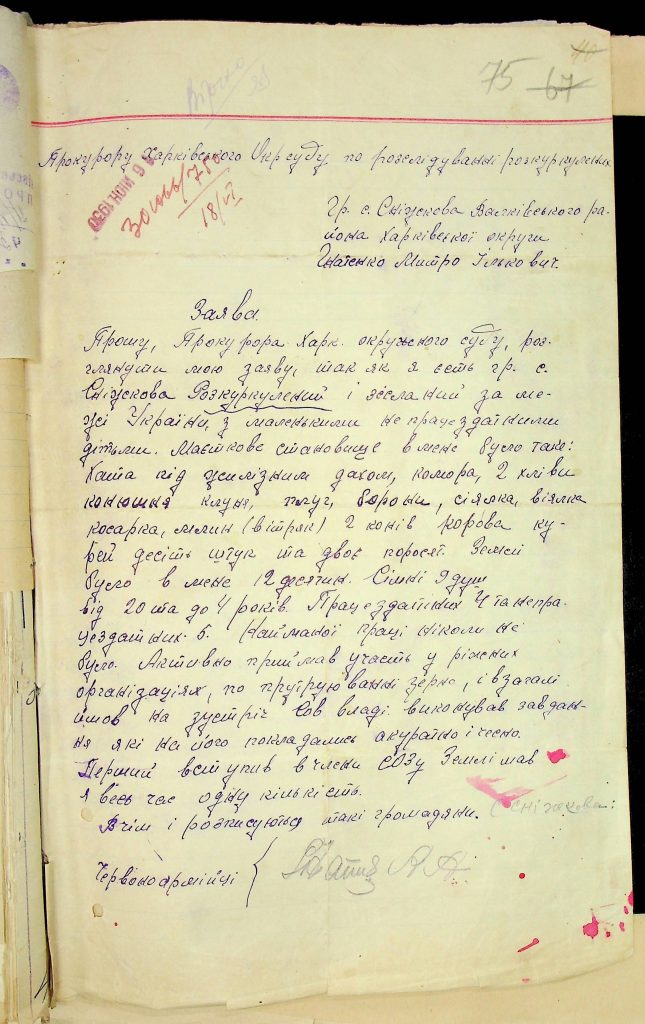 40
75 67
Вірно
Прокурору Харківського Окрсуду по розслідуванні розкуркулених
9 ИЮН 1930
18/VI
Гр. с. Сніжкова Валківського ра-
йона Харківської округи
Гнатенко Митро Ількович.
Заява
Прошу, Прокурора Харк. окружсного суду, роз-
глянути мою заяву, так як я єсть гр. с.
Сніжкова Розкуркулений і зісланий за ме-
жі України, з маленькими не працездатними
дітьми. Маєткове становище в мене було таке:
Хата під жилізним дахом, комора, 2 хліви
конюшня клуня, плуг, борони, сіялка, віялка
косарка, млин (вітряк) 2 коней корова ку-
рей десіть штук та двоє поросят. Землі
було в мене 12 десятин. Сімні 9 душ
від 20 та до 4 років. Працездатних 4 та непра-
цездатних - 5. Найманої праці ніколи не
було. Активно приймав участь у ріжних
організаціях, по проірюванні зерна, і взагалі
йшов на зустріч Сов владі виконував завдан-
ня які на його покладались акуратно і чесно.
Перший вступив в члени СОЗу Землі мав
я весь час одну кількість.
В чім і розписуються такі громадяни. (Сніжкова:
Червоноармійці {